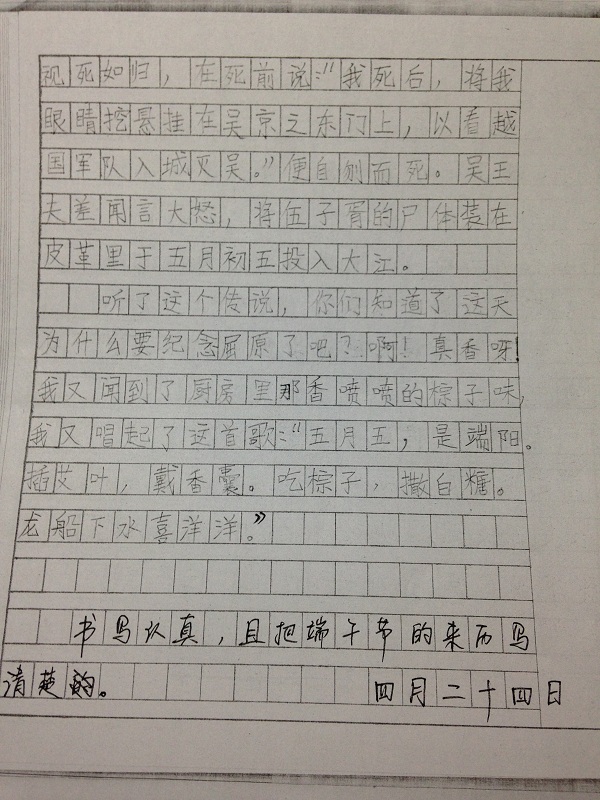 视死如归，在死前说：“我死后，将我
眼睛挖悬挂在吴京之东门上，以看越
国军队入城灭吴。”便自刎而死。吴王
夫差闻言大怒，将伍子胥的尸体装在
皮革里于五月初五投入大江。
听了这个传说，你们知道了这天
为什么要纪念屈原了吧？啊！真香呀！
我又闻到了厨房里那香喷喷的棕子味，
我又唱起了这首歌：“五月五，是端阳。
插艾叶，戴香囊。吃棕子，撒白糖。
龙船下水喜洋洋。”
书写认真，且把端午节的来历写
清楚的。
四月二十四日